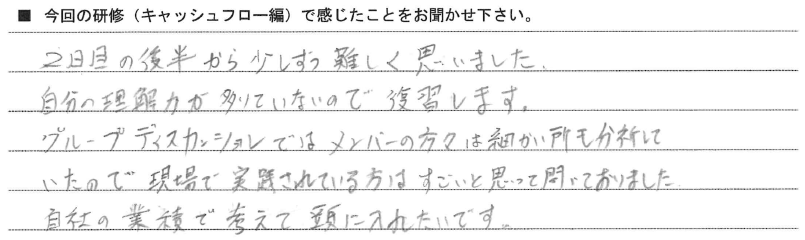 ■ 今回の研修（キャッシュフロー編）で感じたことをお聞かせ下さい。
2日目の後半から少しずつ難しく思いました。
自分の理解力が足りていないので復習します。
グループディスカッションではメンバーの方々は細かい所も分析して
いたので現場で実践されている方はすごいと思って聞いておりました
自社の業績で考えて頭に入れたいです。